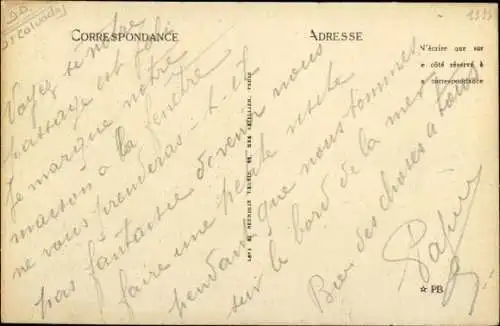 CORRESPONDANCE
ADRESSE
N'écrire que sur
le côté réservé à
la correspondance
Voyez se notre
passage est joli
Je marque notre
maison à la fenêtre
ne vous prenderas-t-il
pas fantaisie de venir nous
faire une petite visite
pendant que nous sommes
sur le bord de la mer
Bien des choses à tous
PB